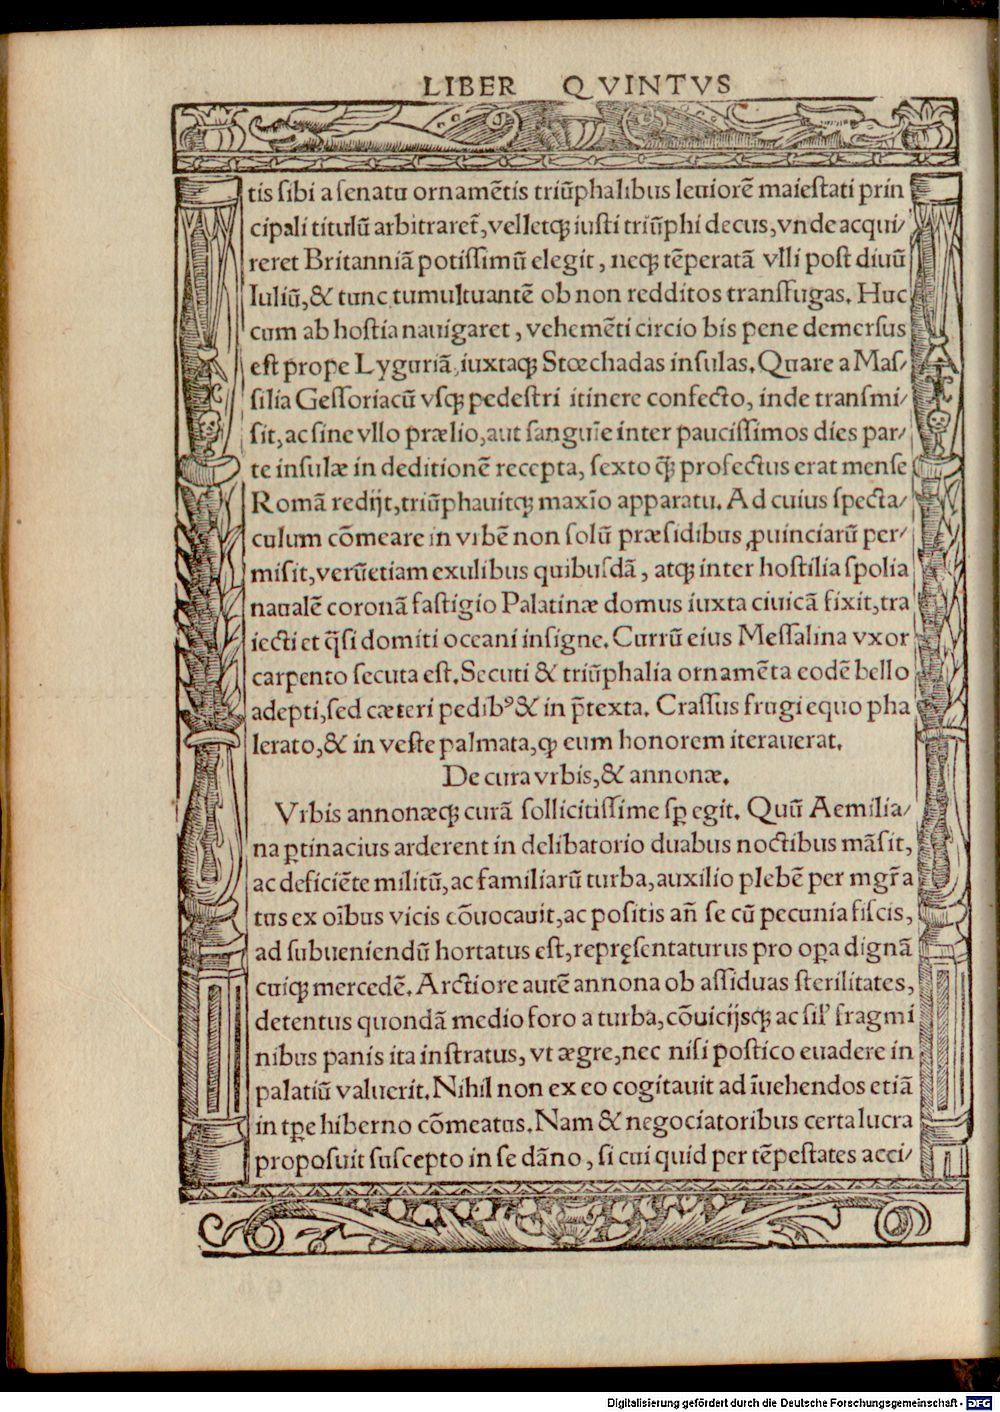 LIBER QVINTVS
tis sibi a senatu ornamētis triūphalibus leuiorē maiestati prin
cipali titulū arbitraret᷑, velletq́ꝫ iusti triūphi decus, vnde acqui/
reret Britanniā potissimū elegit, neqꝫ tēperatā vlli post diuū
Iuliū, & tunc tumultuantē ob non redditos transfugas. Huc
cum ab hostia nauigaret, vehemēti circio bis pene demersus
est prope Lyguriā, iuxtaqꝫ Stœchadas insulas. Quare a Mas/
silia Gessoriacū vsqꝫ pedestri itinere confecto, inde transmi/
sit, ac sine vllo prælio, aut sanguīe inter paucissimos dies par/
te insulæ in deditionē recepta, sexto q̄ꝫ profectus erat mense
Romā redijt, triūphauitqꝫ maxīo apparatu. Ad cuius specta/
culum cōmeare in vrbē non solū præsidibus ꝓuinciarū per/
misit, verūetiam exulibus quibusdā, atqꝫ inter hostilia spolia
naualē coronā fastigio Palatinæ domus iuxta ciuicā fixit, tra
iecti et q̄si domiti oceani insigne. Currū eius Messalina vxor
carpento secuta est. Secuti & triūphalia ornamēta eodē bello
adepti, sed cæteri pedibꝰ & in p̄texta. Crassus frugi equo pha
lerato, & in veste palmata, ꝙ eum honorem iterauerat.
De cura vrbis, & annonæ.
Vrbis annonæqꝫ curā sollicitissime sꝑ egit. Quū Aemilia/
na ꝑtinacius arderent in delibatorio duabus noctibus māsit,
ac deficiēte militū, ac familiarū turba, auxilio plebē per mgr̄a
tus ex oībus vicis cōuocauit, ac positis añ se cū pecunia fiscis,
ad subueniendū hortatus est, repręsentaturus pro oꝑa dignā
cuiqꝫ mercedē. Arctiore autē annona ob assiduas sterilitates,
detentus quondā medio foro a turba, cōuicijsqꝫ ac sil̓ fragmi
nibus panis ita instratus, vt ægre, nec nisi postico euadere in
palatiū valuerit. Nihil non ex eo cogitauit ad īuehendos etiā
in tꝑe hiberno cōmeatus. Nam & negociatoribus certa lucra
proposuit suscepto in se dāno, si cui quid per tēpestates acci/
Digitalisierung gefördert durch die Deutsche Forschungsgemeinschaft - DFG